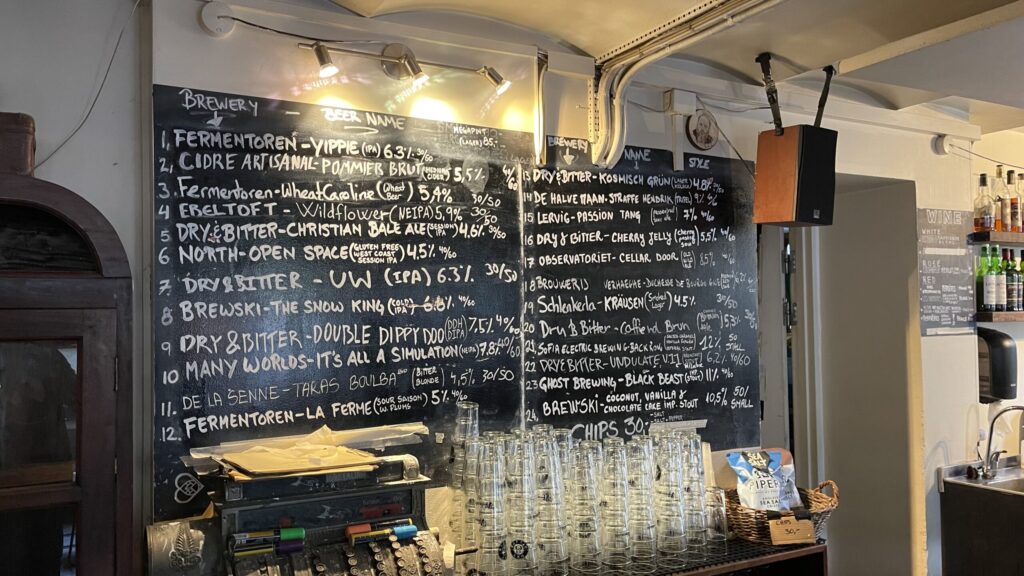 BREWERY
BEER NAME
MEGAPINT
85,-
1, FERMENTOREN-YIPPIE (IPA) 6.3% 30/50
2, CIDRE ARTISANAL-POMMIER BRUT 5,5%
3, Fermentoren-Wheat Caroline (Wheat Beer) 5,4% 30/50
4 EBELTOFT - Wildflower (NEIPA) 5,9% 30/50
5 DRY & BITTER-CHRISTIAN BALE ALE (SESSION IPA) 4,6% 30/50
6 NORTH-OPEN SPACE (GLUTEN FREE WEST COAST SESSION IPA) 4.5% 40/60
7 DRY & BITTER - UW (IPA) 6.3% 30/50
8 BREWSKI-THE SNOW KING (COLD IPA) 6.8% 40/60
9 DRY & BITTER-DOUBLE DIPPY DOO (DDH DIPA) 7.5% 40/60
10 MANY WORLDS-IT'S ALL A SIMULATION (NEIPA) 7.8% 40/60
11. DE LA SENNE-TARAS BOULBA (BITTER BLONDE) 4,5% 30/50
12. FERMENTOREN-LA FERME (SOUR SAISON W. PLUMS) 5% 40/60
BREWERY
NAME
STYLE
13. DRY & BITTER-KOSMISCH GRÜN 4.8%
14 DE HALVE MAAN-STRAFFE HENDRIK 9%
15 LERVIG-PASSION TANG 7% 40/60
16 DRY & BITTER - CHERRY JELLY 5,5% 40/60
17 OBSERVATORIET - CELLAR DOOR 8,5%
18 BROUWERIJ VERHAEGHE-DUCHESSE DE BOURG
19 Schlenkerla - KRÄUSEN (Smoked Lager) 4.5%
20 Dry & Bitter - Coffe nd Brun 5.3% 30/50
21, SOFIA ELECTRIC BREWING-BACK IN 12% 50 SMALL
22 DRY & BITTER-UNDULATE VII 6.2% 40/60
23 GHOST BREWING - BLACK BEAST (STOUT) 11% 40/
24, BREWSKI- COCONUT, VANILLA & CHOCOLATE CAKE IMP. STOUT 10,5% 50/ SMALL
CHIPS 30,-
WINE
WHITE
ROSE
RED
CHIPS
30,-